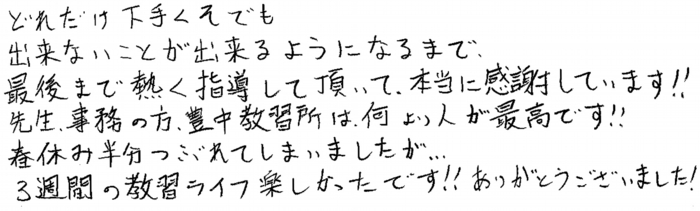 どれだけ下手くそでも
出来ないことが出来るようになるまで、
最後まで熱く指導して頂いて、本当に感謝しています!!
先生、事務の方、豊中教習所は、何より人が最高です!!
春休み半分つぶれてしまいましたが…
3週間の教習ライフ楽しかったです!!ありがとうございました!